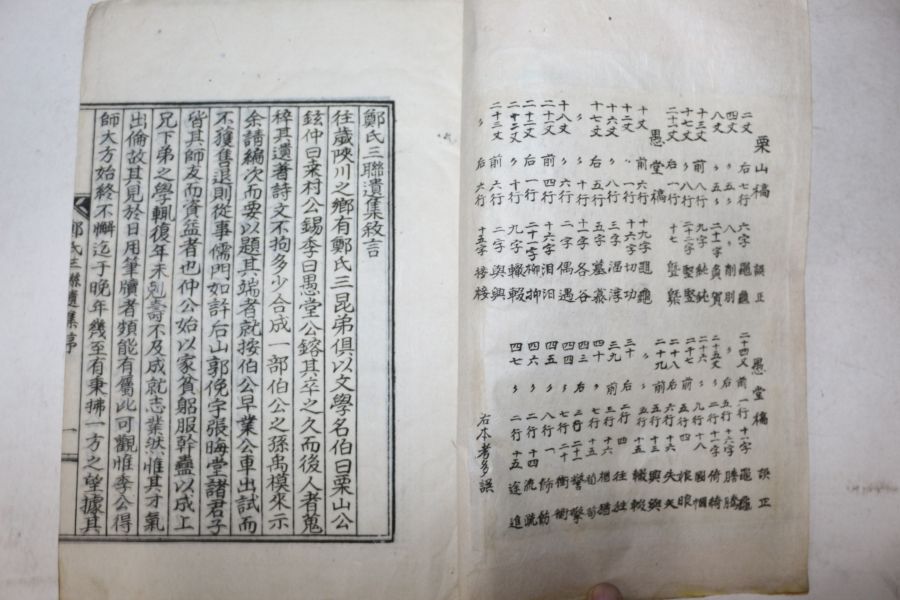 栗山稿 誤正
二丈 右 七行 六字
四丈 〃 五〃 八〃 削別
八丈 〃 五〃 二字 責賀
十三丈 前 八行 九字 純鈍
十七丈 〃 八行 二十二字
二十一丈 右 一行 十七
愚堂稿
十丈 前 六行 十九字
十二丈 〃 一行 十六字 切功
十六丈 〃 三行 三字
十七丈 右 五行 五字 墓慕
〃 〃 六行 十一字 各谷
十八丈 〃 六行 二字 偶遇
二十一丈 前 四行 十六字 汨泪
〃 右 一行 二十一字 柳抑
二十二丈 〃 十行 九字 轍輟
二十三丈 前 六行 二字 與興
〃 右 六行 十五字 接椄
愚堂稿 誤正
二十四丈 前 一行 十一字
〃 右 五行 十六字 勝騰
二十五丈 〃 二行 十一字 倚綺
二十六 〃 九行 十八
二十七 前 二行 四
二十八 右 六行 十六 失矢
二十九 前 六行 十五 興與
〃 〃 五行 十三 輟轍
三十 右 二行 四
三九 前 三行 十
四十 右 七行 十五
四三 〃 三行 二
四四 〃 七行 二十 衝衡
四五 〃 八行 一
四六 〃 二行 十四
四七 〃 二行 十五
右本考多誤
鄭氏三聯遺集敘言
往歲陜川之鄉有鄭氏三昆弟俱以文學名伯曰栗山公
鉉仲曰耒村公錫季曰愚堂公鎔其卒之久而後人者蒐
梓其遺著詩文不拘多少合成一部伯公之孫禹模來示
余請編次而要以題其端者就按伯公早業公車出試而
不獲售退則從事儒門如許后山郭俛宇張晦堂諸君子
皆其師友而資益者也仲公始以家貧躬服幹蠱以成上
兄下弟之學輒復年未剋壽不及成就志業然惟其才氣
出倫故其見於日用筆牘者類能有屬此可觀惟季公得
師大方始終不懈迄于晚年幾至有秉拂一方之望據其
鄭氏三聯遺集序 一